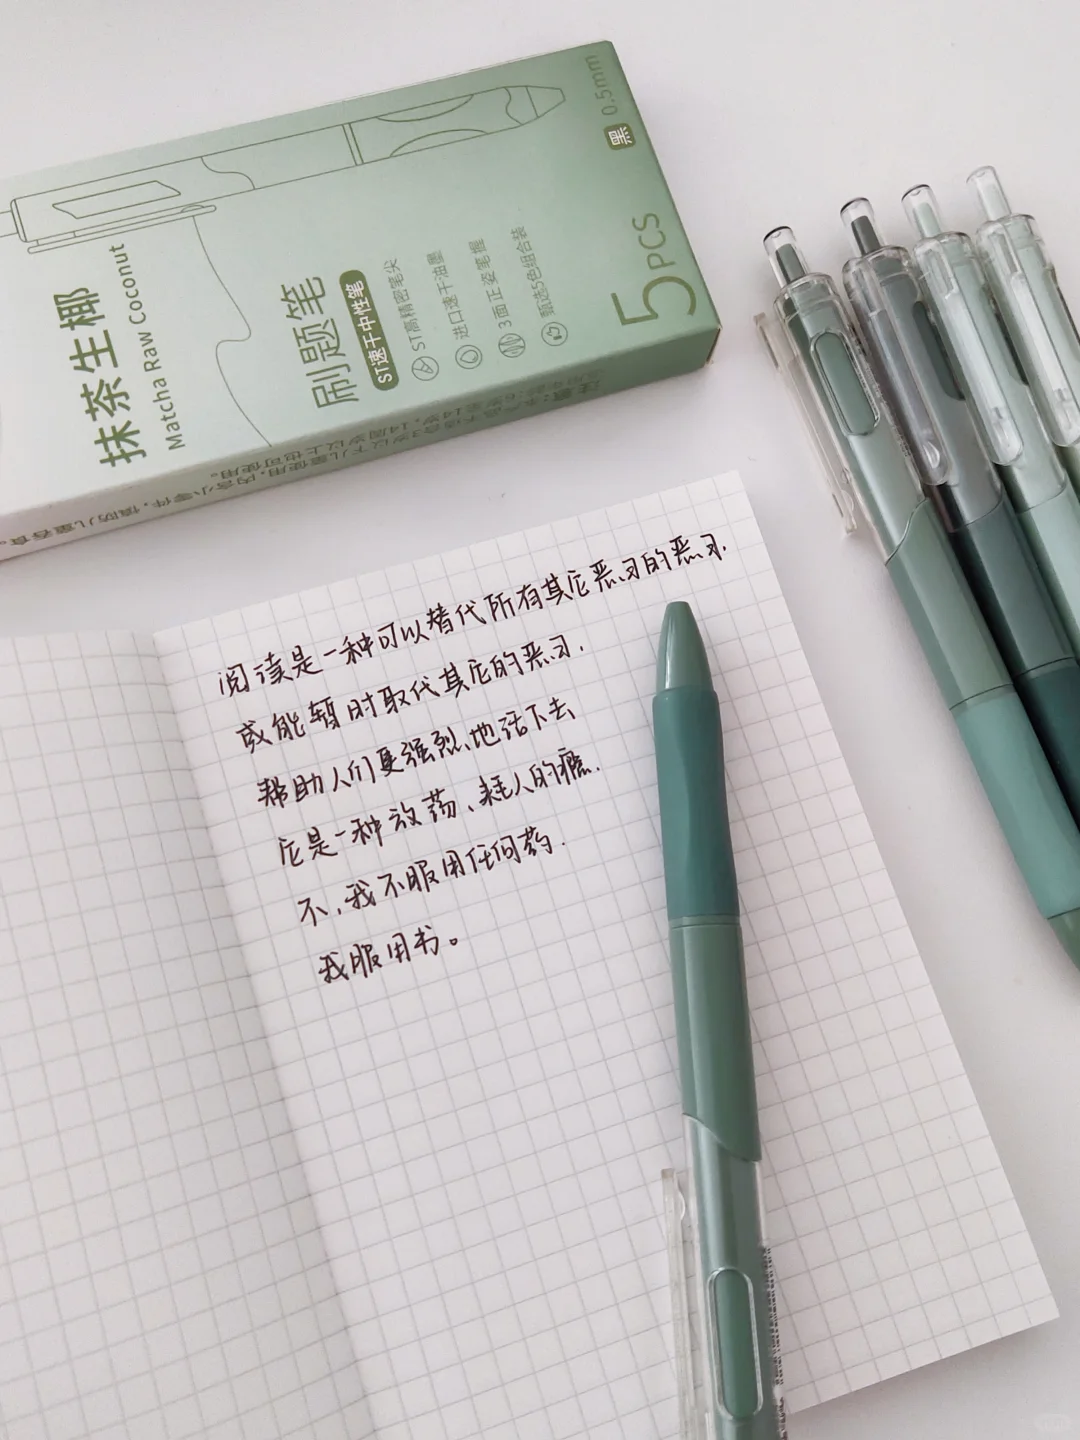 抹茶生椰
Matcha Raw Coconut
刷题笔
ST速干中性笔
ST高精密笔尖
进口速干油墨
3面正姿笔握
甄选5色组合装
5PCS
黑 0.5mm
阅读是一种可以替代所有其它恶习的恶习.
或能暂时取代其它的恶习.
帮助人们更强烈、地活下去
它是一种放荡、耗人的瘾.
不,我不服用任何药.
我服用书。